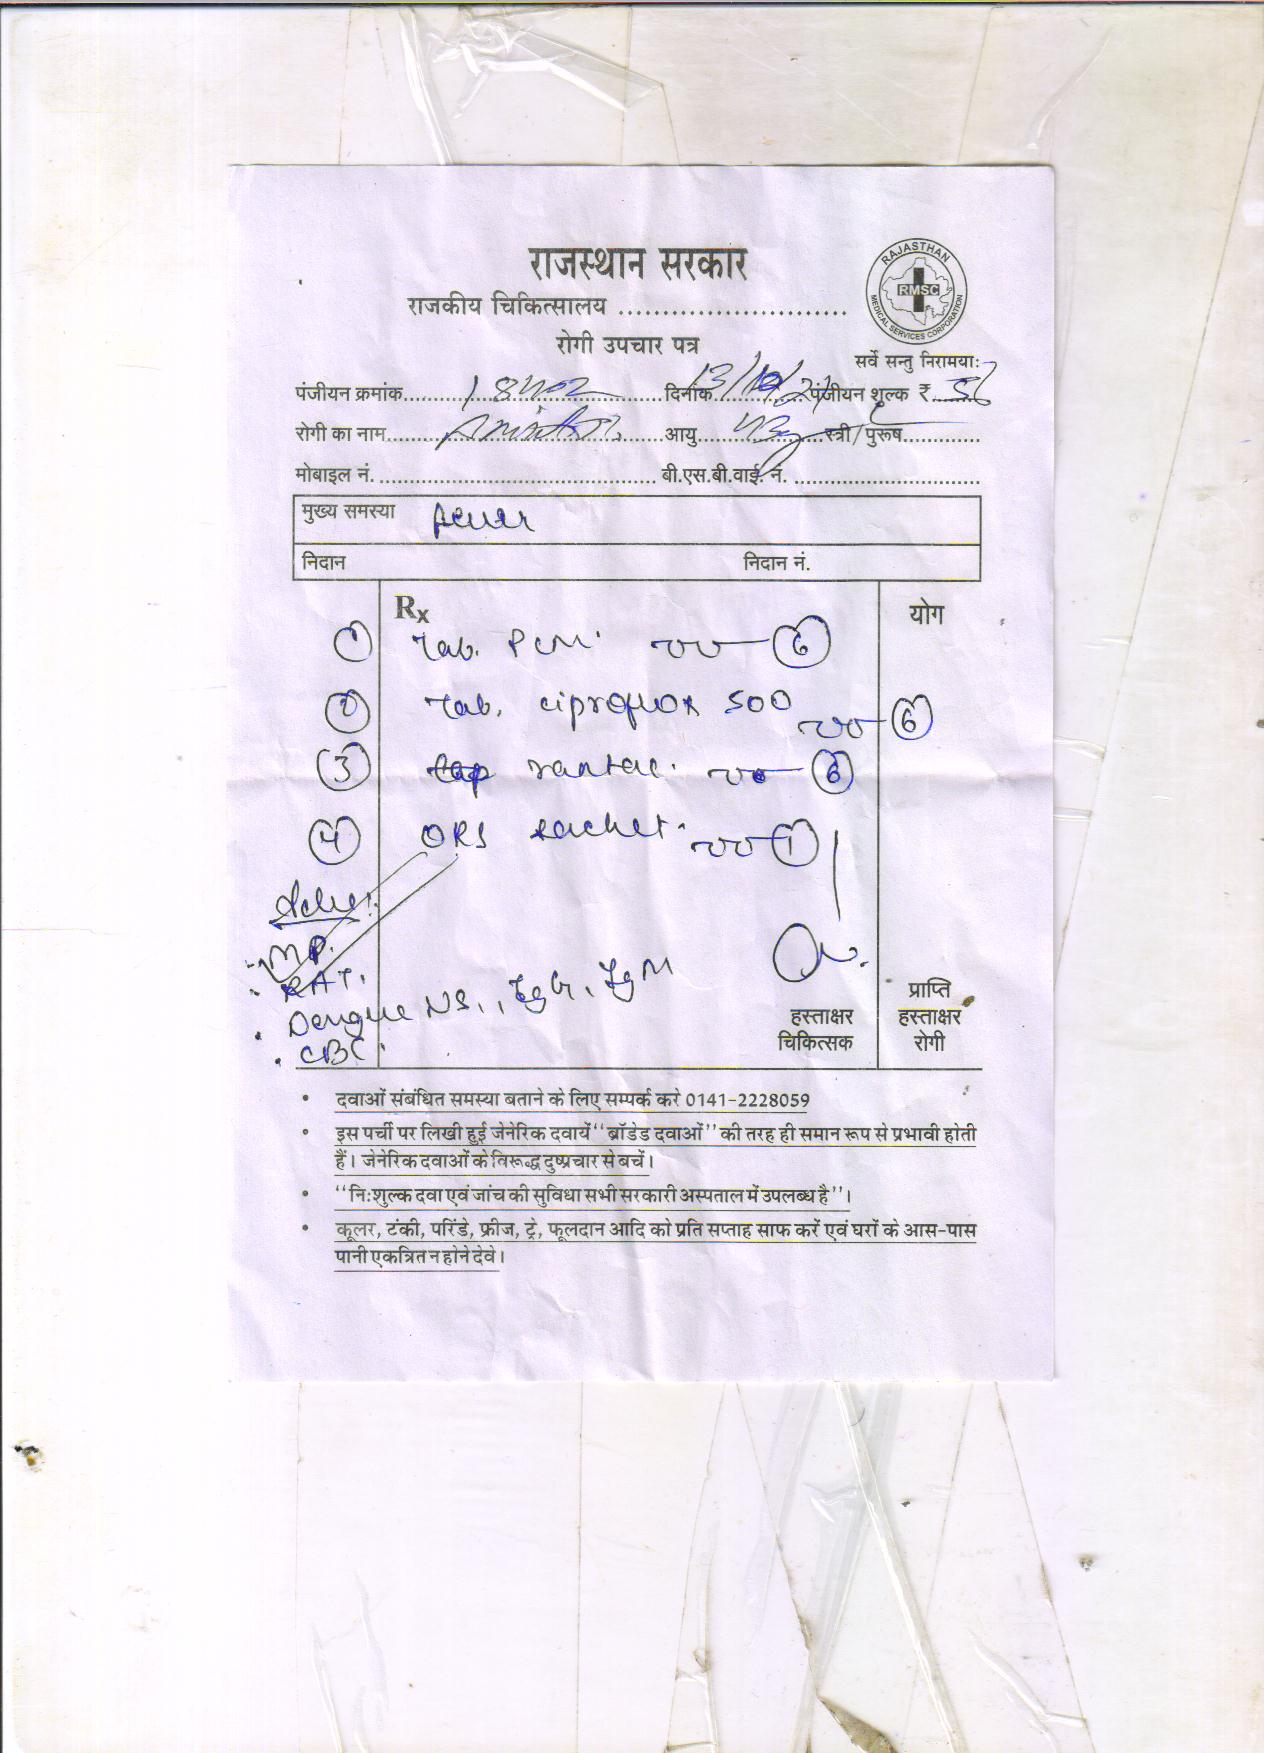 राजस्थान सरकार
राजकीय चिकित्सालय ..........................
रोगी उपचार पत्र
RAJASTHAN
RMSC
MEDICAL SERVICES CORPORATION
सर्वे सन्तु निरामयाः
पंजीयन क्रमांक........ दिनांक 13/10/24 पंजीयन शुल्क ₹ 5/
रोगी का नाम........ आयु........ स्त्री/पुरूष.............
मोबाइल नं. ........ बी.एस.बी.वाई. नं. ........
मुख्य समस्या fever
निदान निदान नं.
Rx योग
1 Tab. PCM. 6
2 Tab. ciproflox 500 6
3 rantac. 6
4 ORS sachet. 1
Adv:
- MP.
. RAT.
. Dengue NS1, IgG, IgM
. CBC.
हस्ताक्षर चिकित्सक
प्राप्ति हस्ताक्षर रोगी
• दवाओं संबंधित समस्या बताने के लिए सम्पर्क करे 0141-2228059
• इस पर्ची पर लिखी हुई जेनेरिक दवायें "ब्रॉडेड दवाओं" की तरह ही समान रूप से प्रभावी होती
हैं। जेनेरिक दवाओं के विरूद्ध दुष्प्रचार से बचें।
• "निःशुल्क दवा एवं जांच की सुविधा सभी सरकारी अस्पताल में उपलब्ध है"।
• कूलर, टंकी, परिंडे, फ्रीज, ट्रे, फूलदान आदि को प्रति सप्ताह साफ करें एवं घरों के आस-पास
पानी एकत्रित न होने देवे।